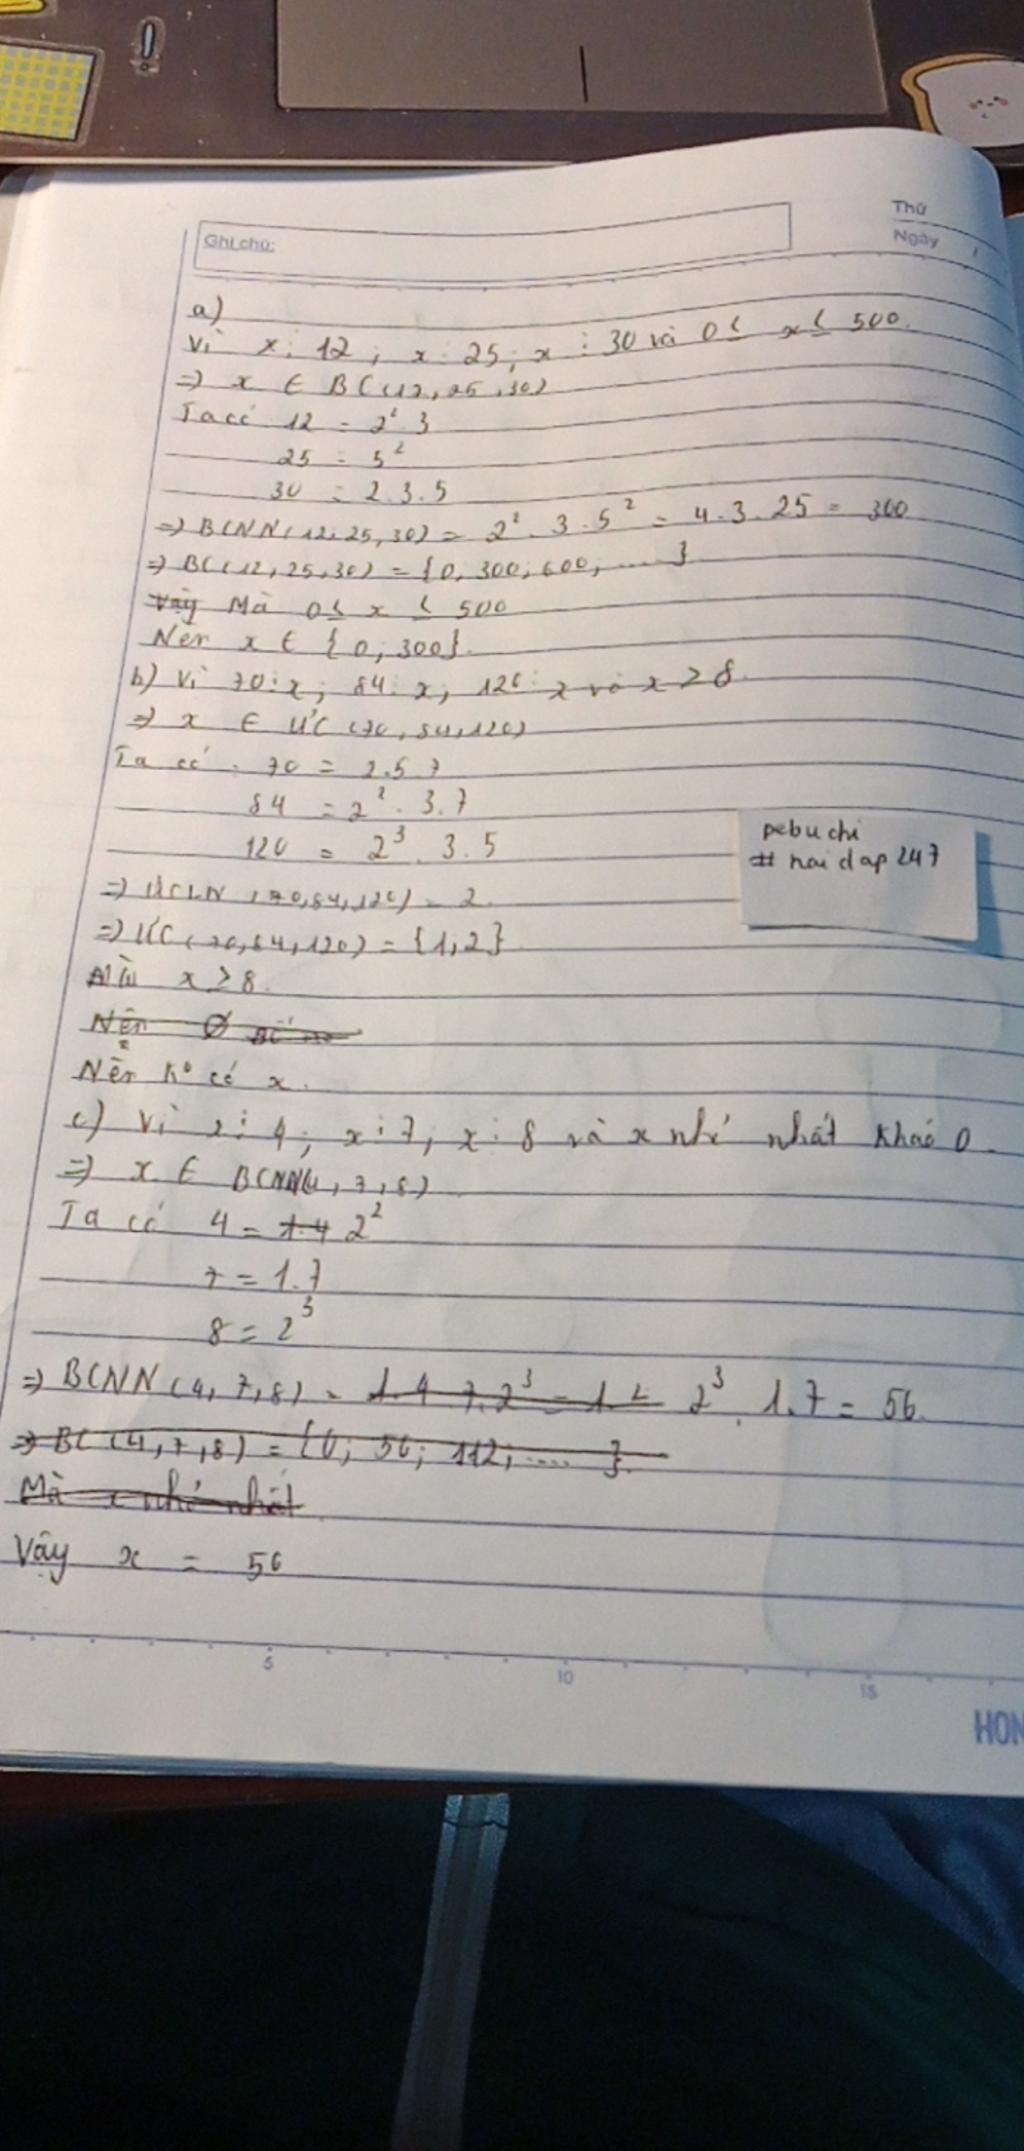 Ghi chú:
Thứ
Ngày /
a)
Vì x ⋮ 12 ; x ⋮ 25 ; x ⋮ 30 và 0 ≤ x ≤ 500.
=> x ∈ BC(12, 25, 30)
Ta có 12 = 2². 3
25 = 5²
30 = 2.3.5
=> BCNN(12, 25, 30) = 2². 3. 5² = 4.3.25 = 300
=> BC(12, 25, 30) = {0, 300, 600, ....}
Vậy Mà 0 ≤ x ≤ 500
Nên x ∈ {0, 300}.
b) Vì 70 ⋮ x ; 84 ⋮ x ; 120 ⋮ x và x ≥ 8
=> x ∈ ƯC (70, 84, 120)
Ta có : 70 = 2.5.7
84 = 2². 3.7
120 = 2³. 3.5
=> ƯCLN (70, 84, 120) = 2.
=> ƯC (70, 84, 120) = {1, 2}
Mà x ≥ 8.
Nên Ø
Nên k° có x.
c) Vì x ⋮ 4 ; x ⋮ 7 ; x ⋮ 8 và x nhỏ nhất khác 0.
=> x ∈ BCNN(4, 7, 8)
Ta có 4 = 1.4 2²
7 = 1.7
8 = 2³
=> BCNN (4, 7, 8) = 1.4.7.2³ = 1. 2³. 1.7 = 56.
=> BC (4, 7, 8) = {0; 56; 112; .... }.
Mà x nhỏ nhất
Vậy x = 56
pebuchi
# hoidap247
5 10 15
HON